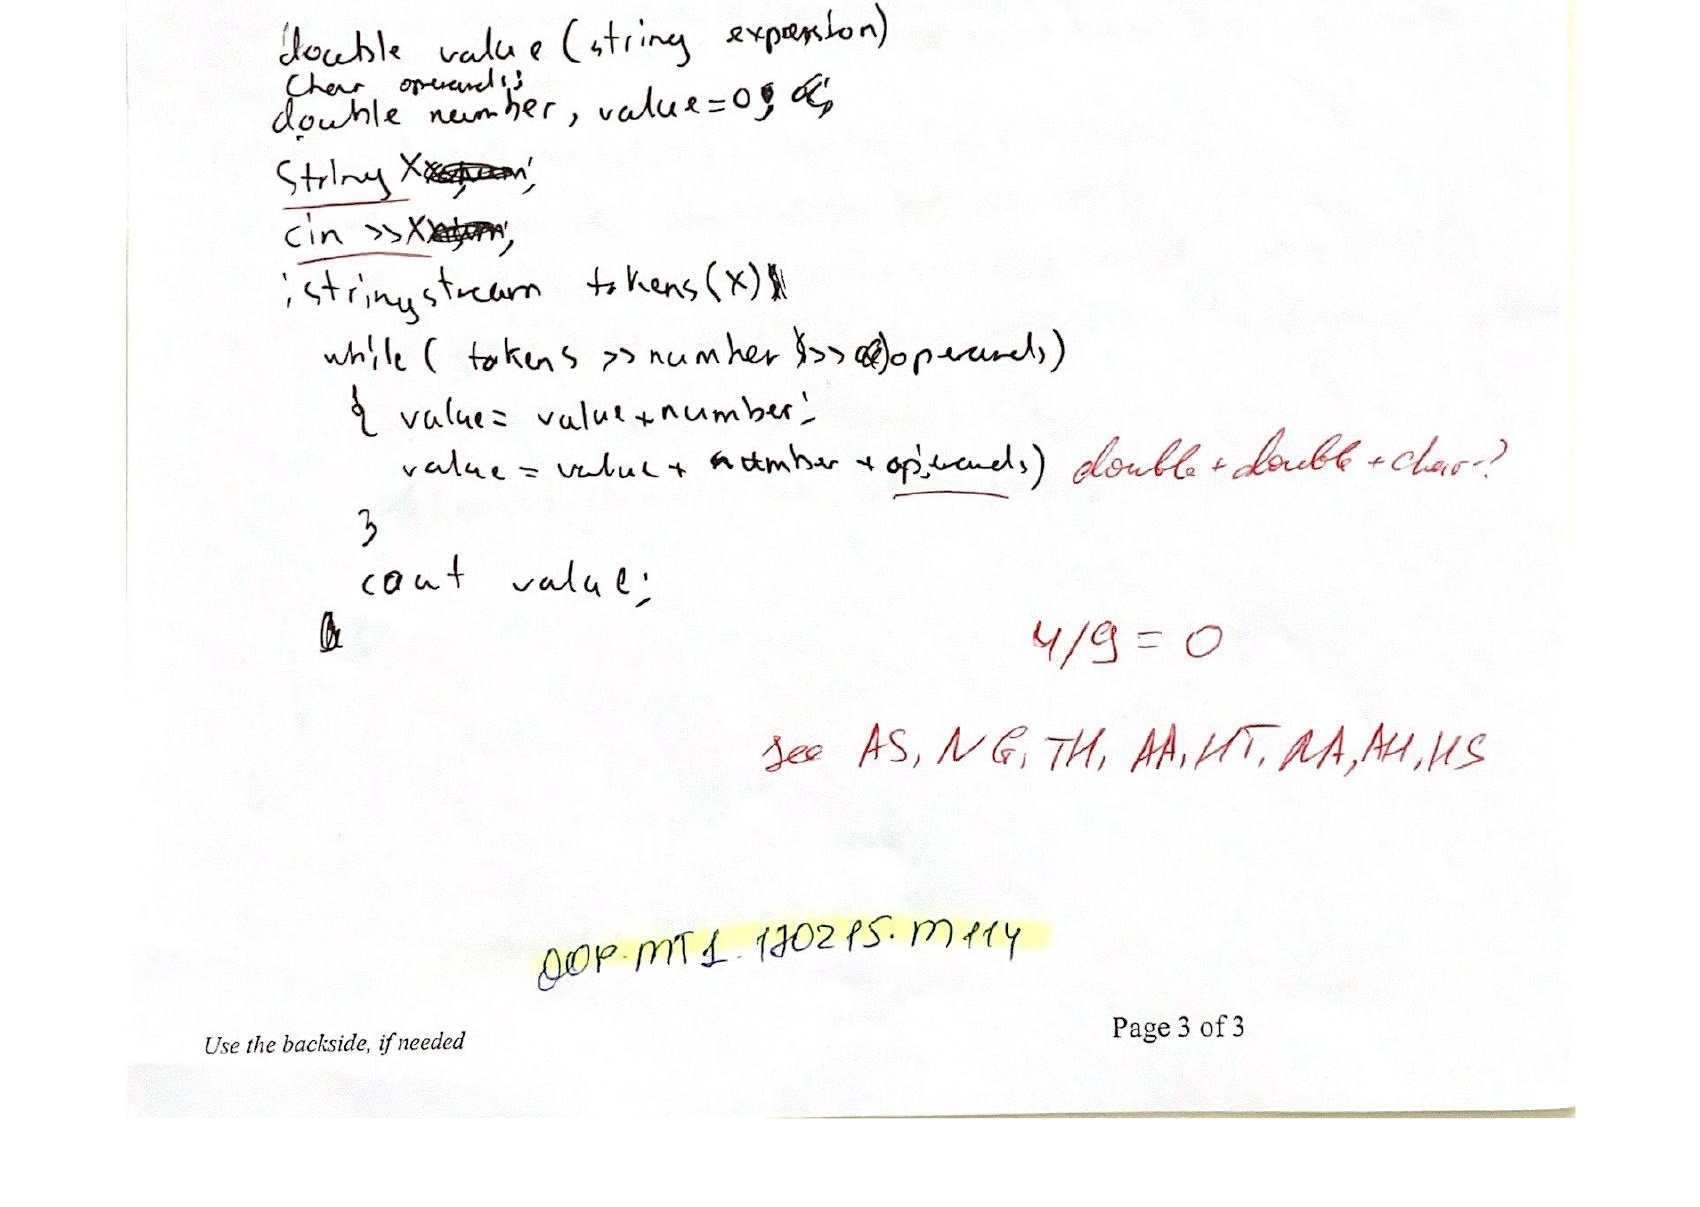 double value (string expression)
Char operands;
double number, value=0;
String X ;
cin >>X ;
istringstream tokens(x)
while ( tokens >> number >> operands)
{ value= value+number;
value = value + number + operands) double + double + char-?
}
cout value;
4/9 = 0
see AS, NG, TH, AA, HT, RA, AH, HS
OOP.MT1.170215.M114
Use the backside, if needed
Page 3 of 3